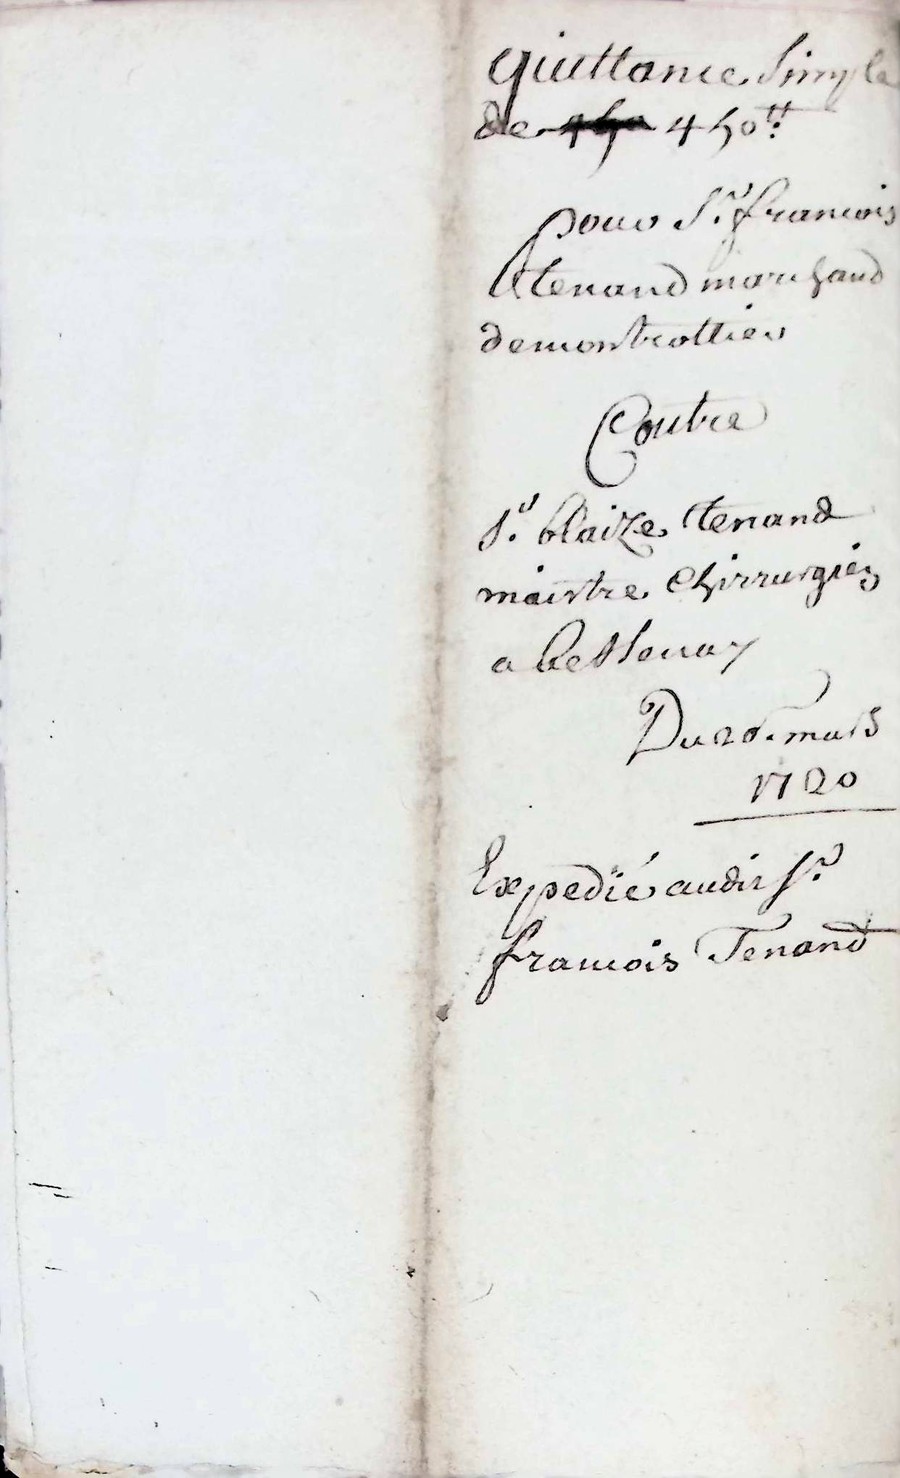 quittance simple
de 450 ₶.
pour Sr. francois
tenand marchand
demontrottier
Contre
Sr. blaize tenand
maistre chirrurgien
a bessenay
Du 26. mars
1720
Expedié audit Sr.
francois Tenand